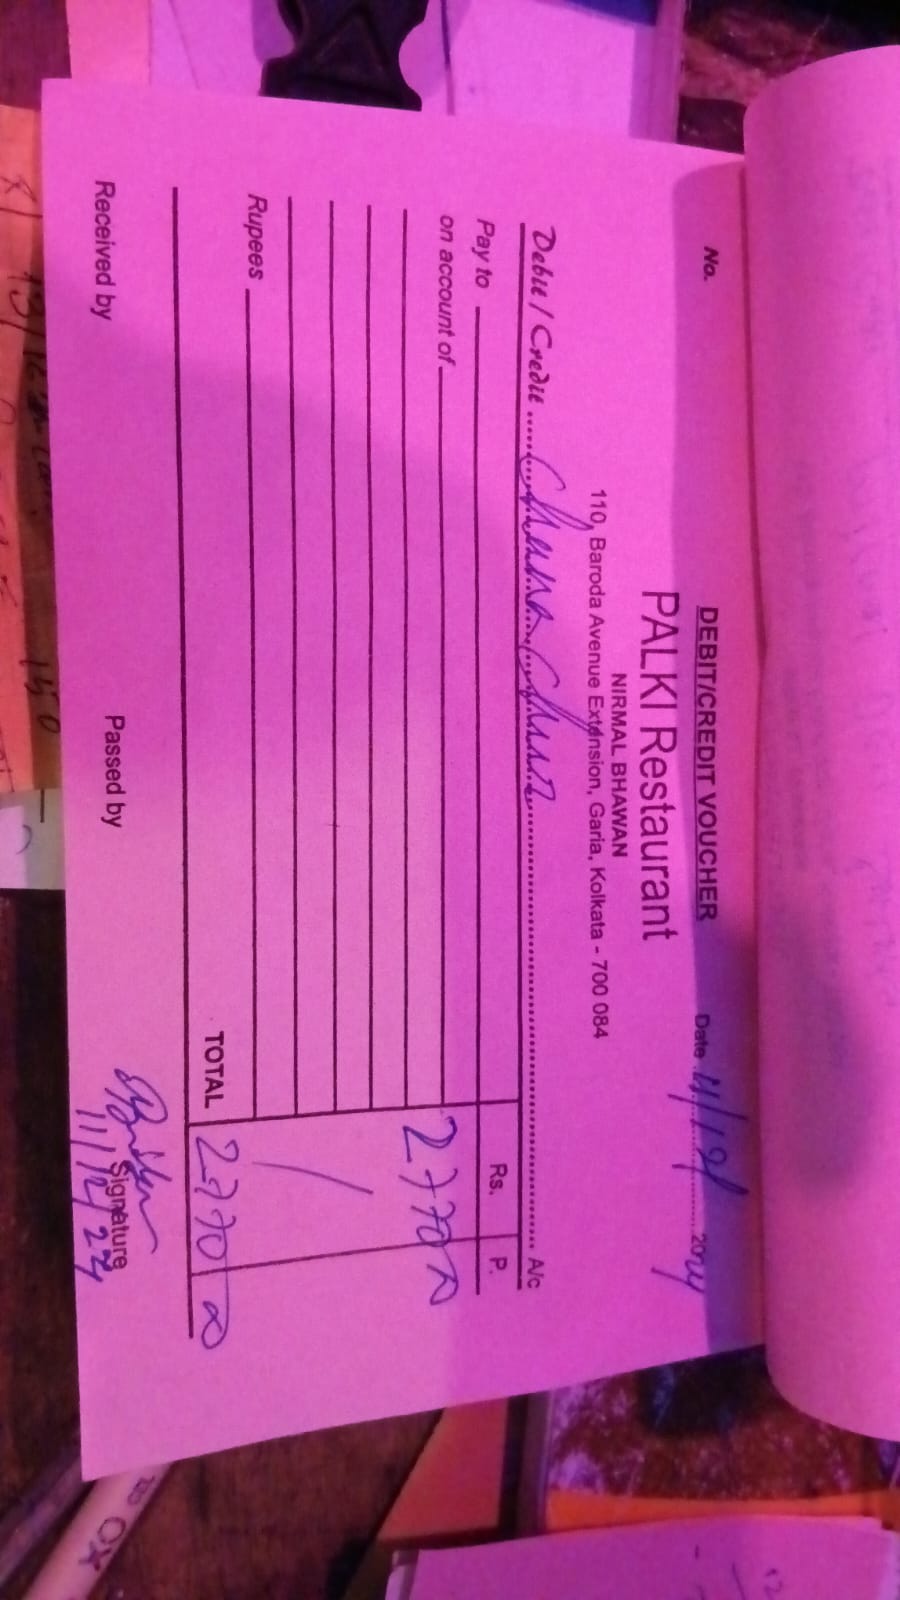 DEBIT/CREDIT VOUCHER
No. Date 11/12/2024
PALKI Restaurant
NIRMAL BHAWAN
110, Baroda Avenue Extension, Garia, Kolkata - 700 084
Debit / Credit A/c
Pay to Rs. P.
on account of 2770
Rupees
TOTAL 2770
Received by Passed by Signature
11/12/24